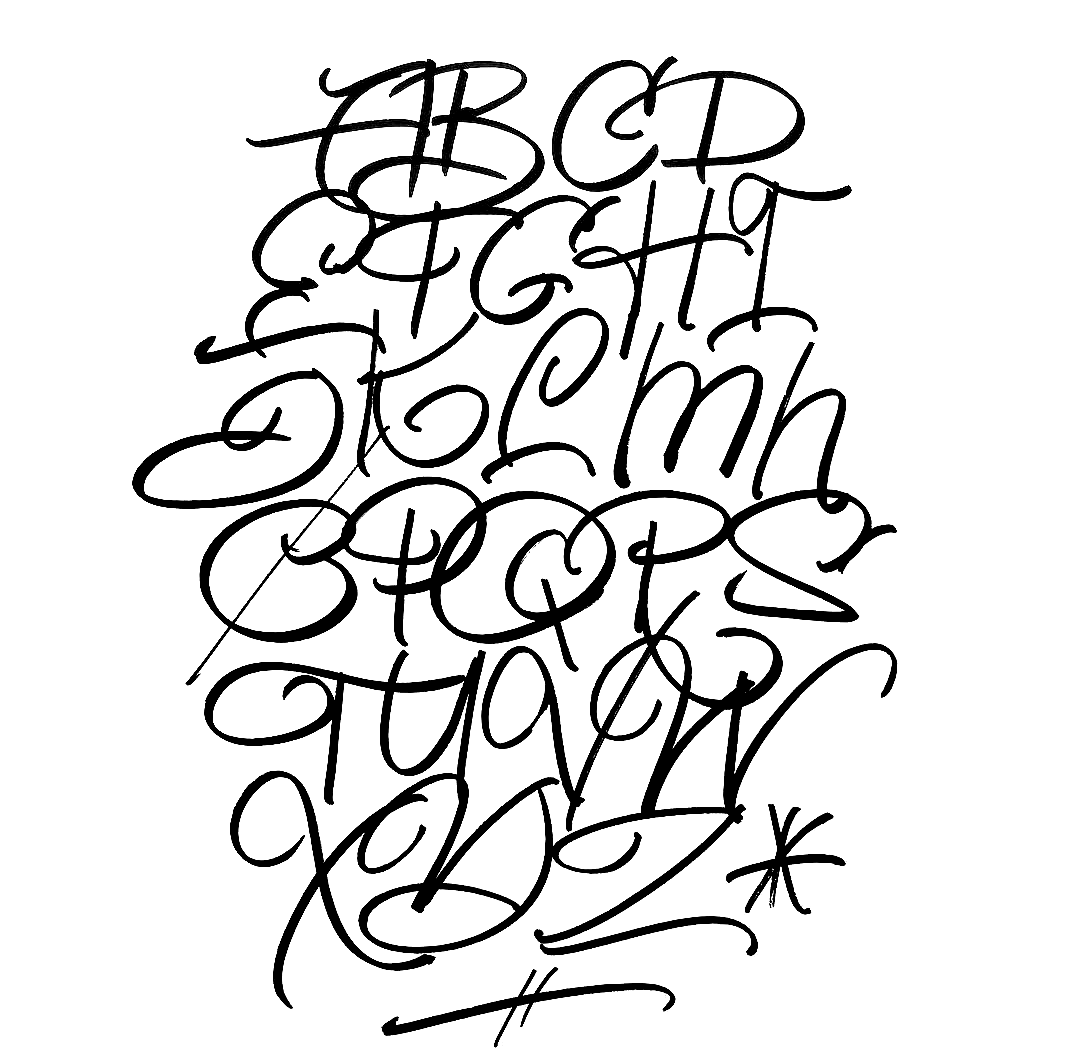 ABCD
EFGHI
JKLMN
OPQRS
TUVW
XYZ*